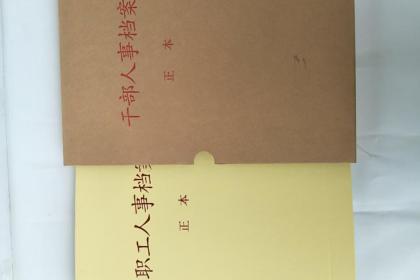 干部人事档案
正本
职工人事档案
正本